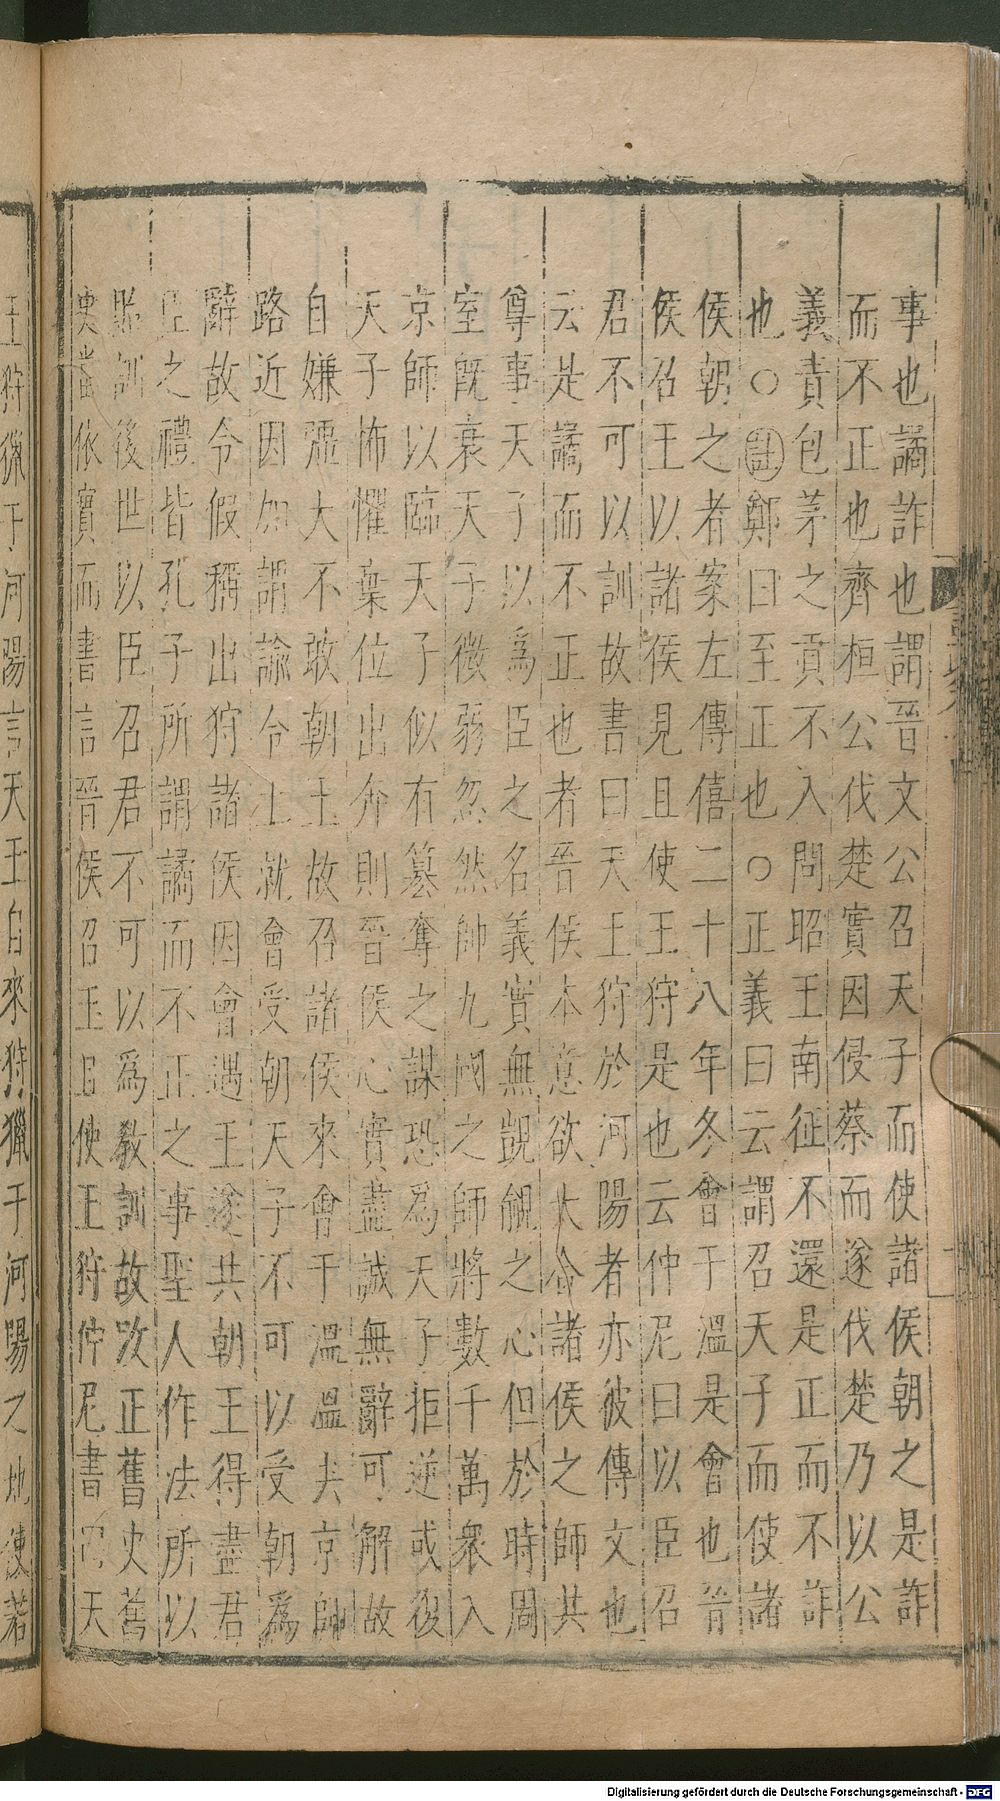 事也譎詐也謂晉文公召天子而使諸侯朝之是詐
而不正也齊桓公伐楚實因侵蔡而遂伐楚乃以公
義責包茅之貢不入問昭王南征不還是正而不詐
也○註鄭曰至正也○正義曰云謂召天子而使諸
侯朝之者案左傳僖二十八年冬會于溫是會也晉
侯召王以諸侯見且使王狩是也云仲尼曰以臣召
君不可以訓故書曰天王狩於河陽者亦彼傳文也
云是譎而不正也者晉侯本意欲大合諸侯之師共
尊事天子以爲臣之名義實無覬覦之心但於時周
室旣衰天子微弱忽然帥九國之師將數千萬衆入
京師以臨天子似有篡奪之謀恐爲天子拒逆或復
天子怖懼棄位出奔則晉侯心實盡誠無辭可解故
自嫌彊大不敢朝王故召諸侯來會于溫溫去京師
路近因加謂諭令王就會受朝天子不可以受朝爲
辭故令假稱出狩諸侯因會遇王遂共朝王得盡君
臣之禮皆孔子所謂譎而不正之事聖人作法所以
貽訓後世以臣召君不可以爲教訓故改正舊史舊
史當依實而書言晉侯召王且使王狩仲尼書曰天
王狩獵于河陽言天王自來狩獵于河陽之地使若
Digitalisierung gefördert durch die Deutsche Forschungsgemeinschaft - DFG